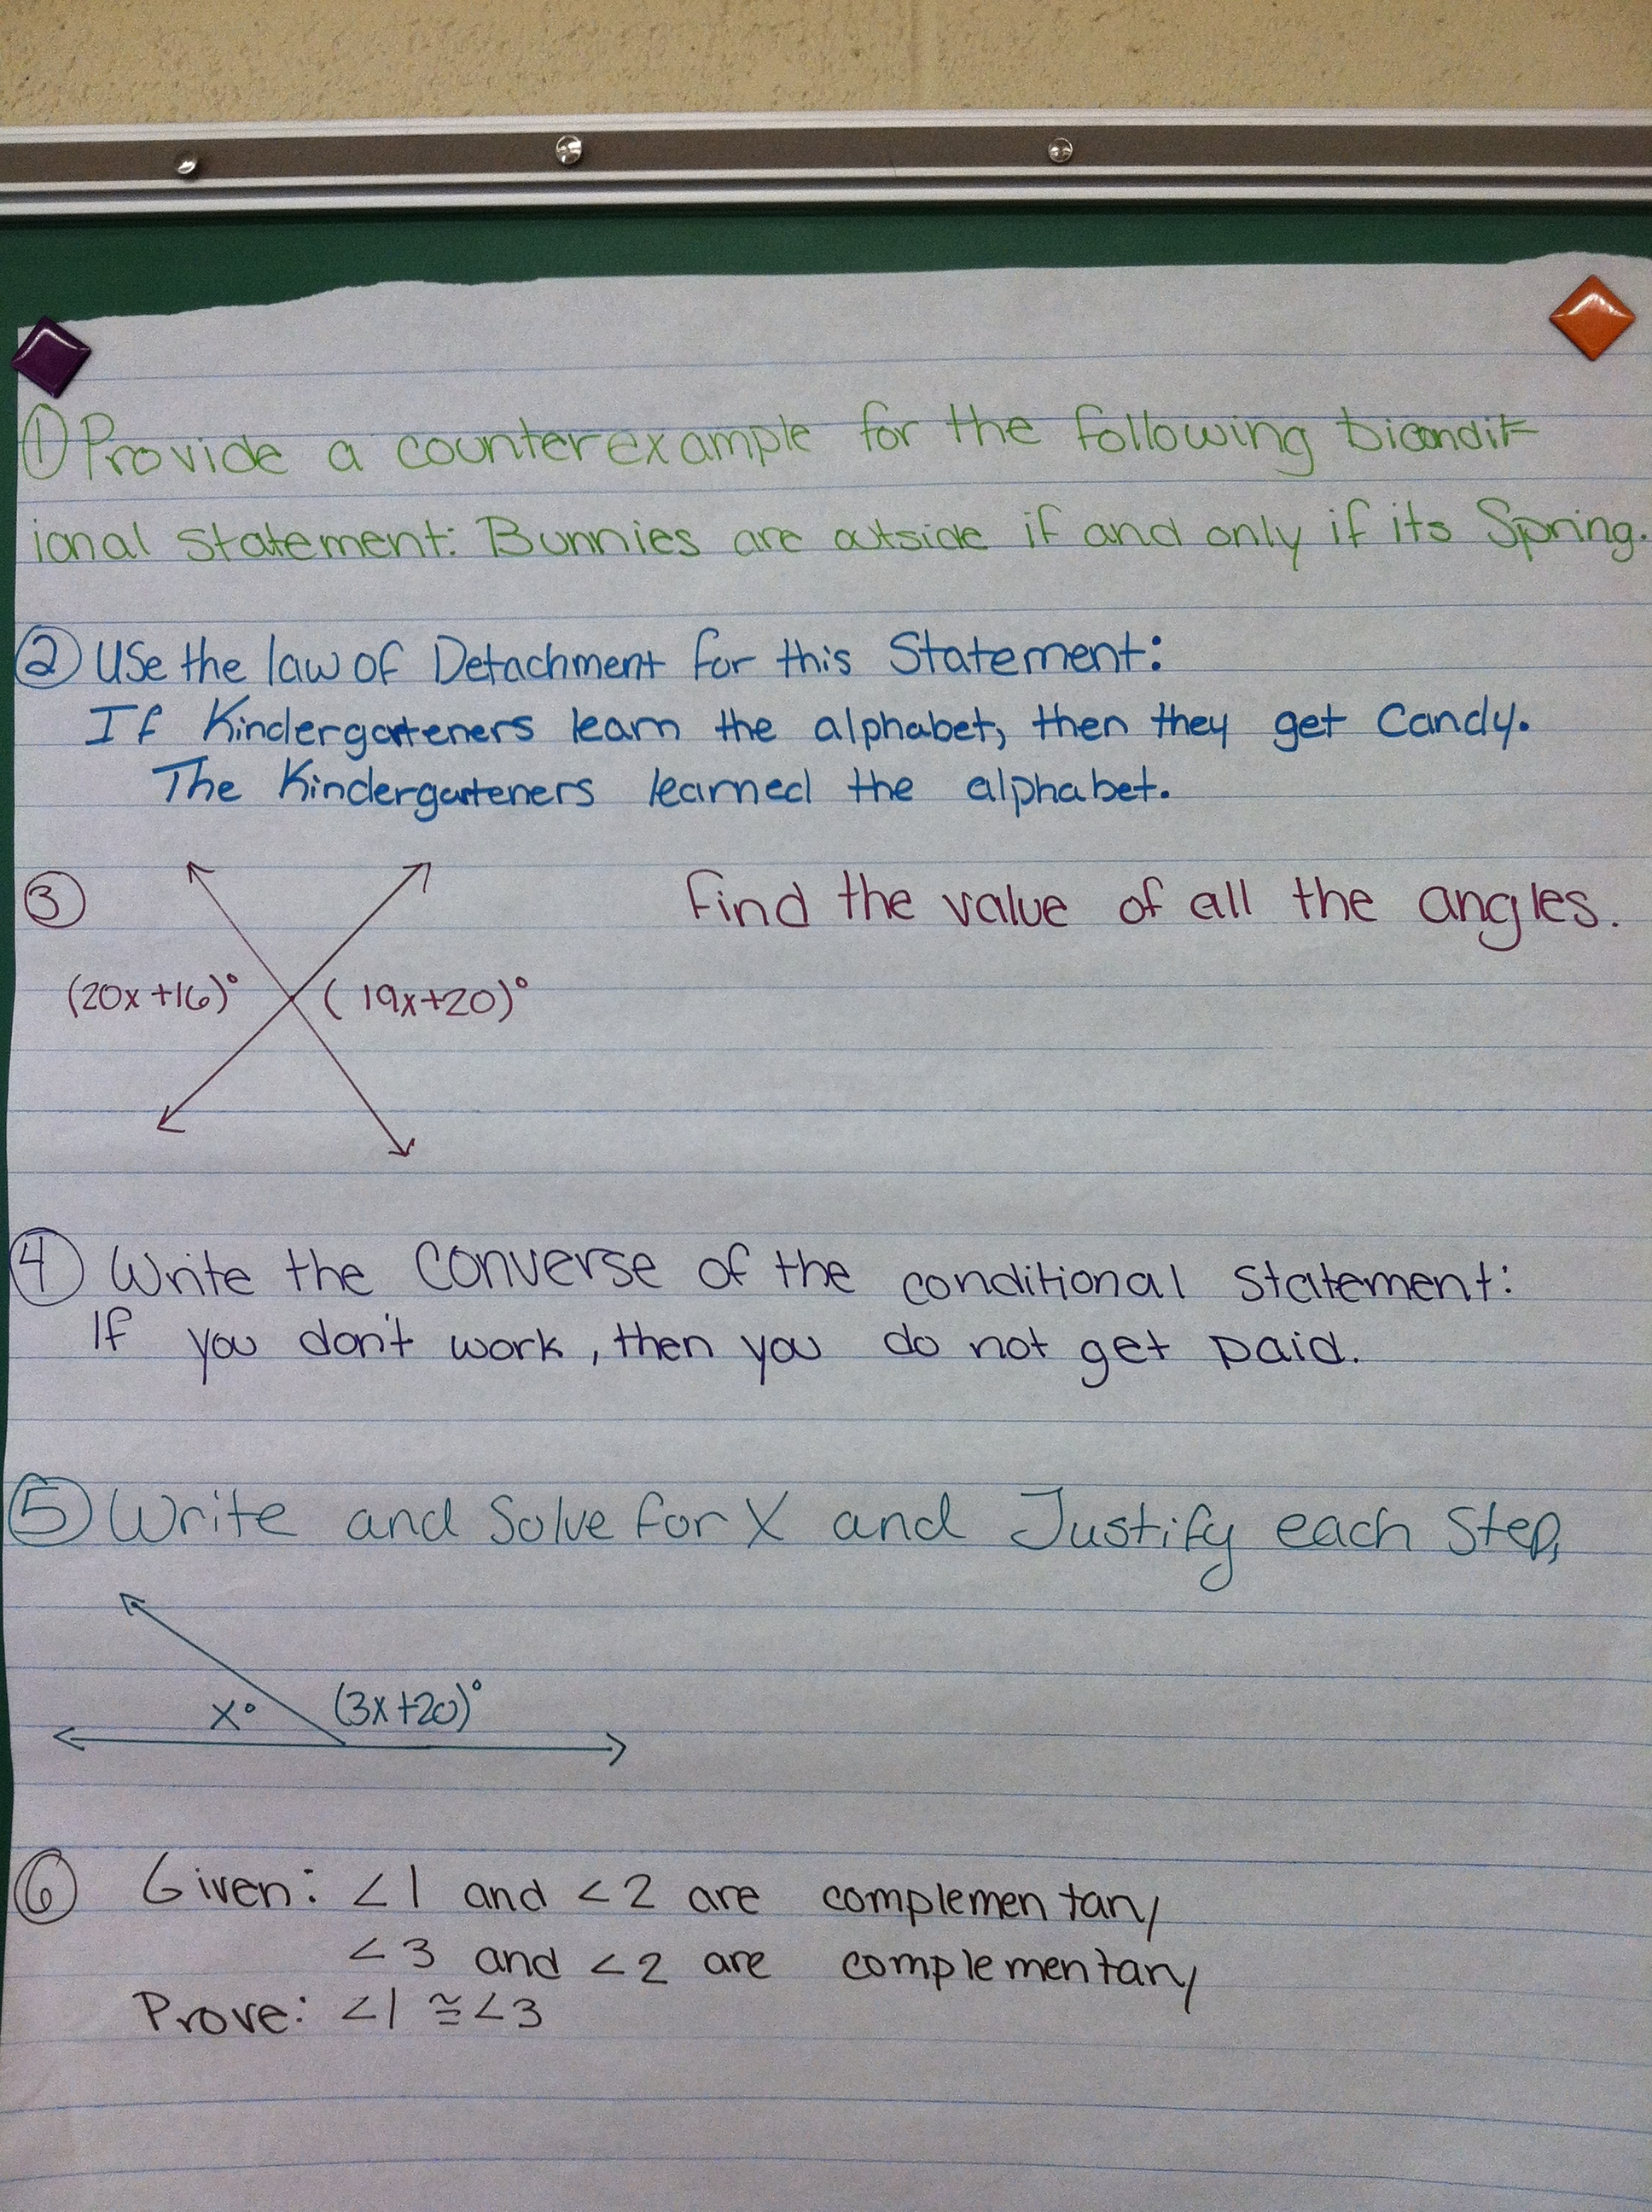 ① Provide a counterexample for the following bicondit-
ional statement: Bunnies are outside if and only if its Spring.
② Use the law of Detachment for this Statement:
If Kindergarteners learn the alphabet, then they get Candy.
The Kindergarteners learned the alphabet.
③ Find the value of all the angles.
(20x+16)° (19x+20)°
④ Write the converse of the conditional statement:
If you don't work, then you do not get paid.
⑤ Write and Solve for X and Justify each Step,
x° (3x+20)°
⑥ Given: <1 and <2 are complementary
<3 and <2 are complementary
Prove: <1 ≅ <3